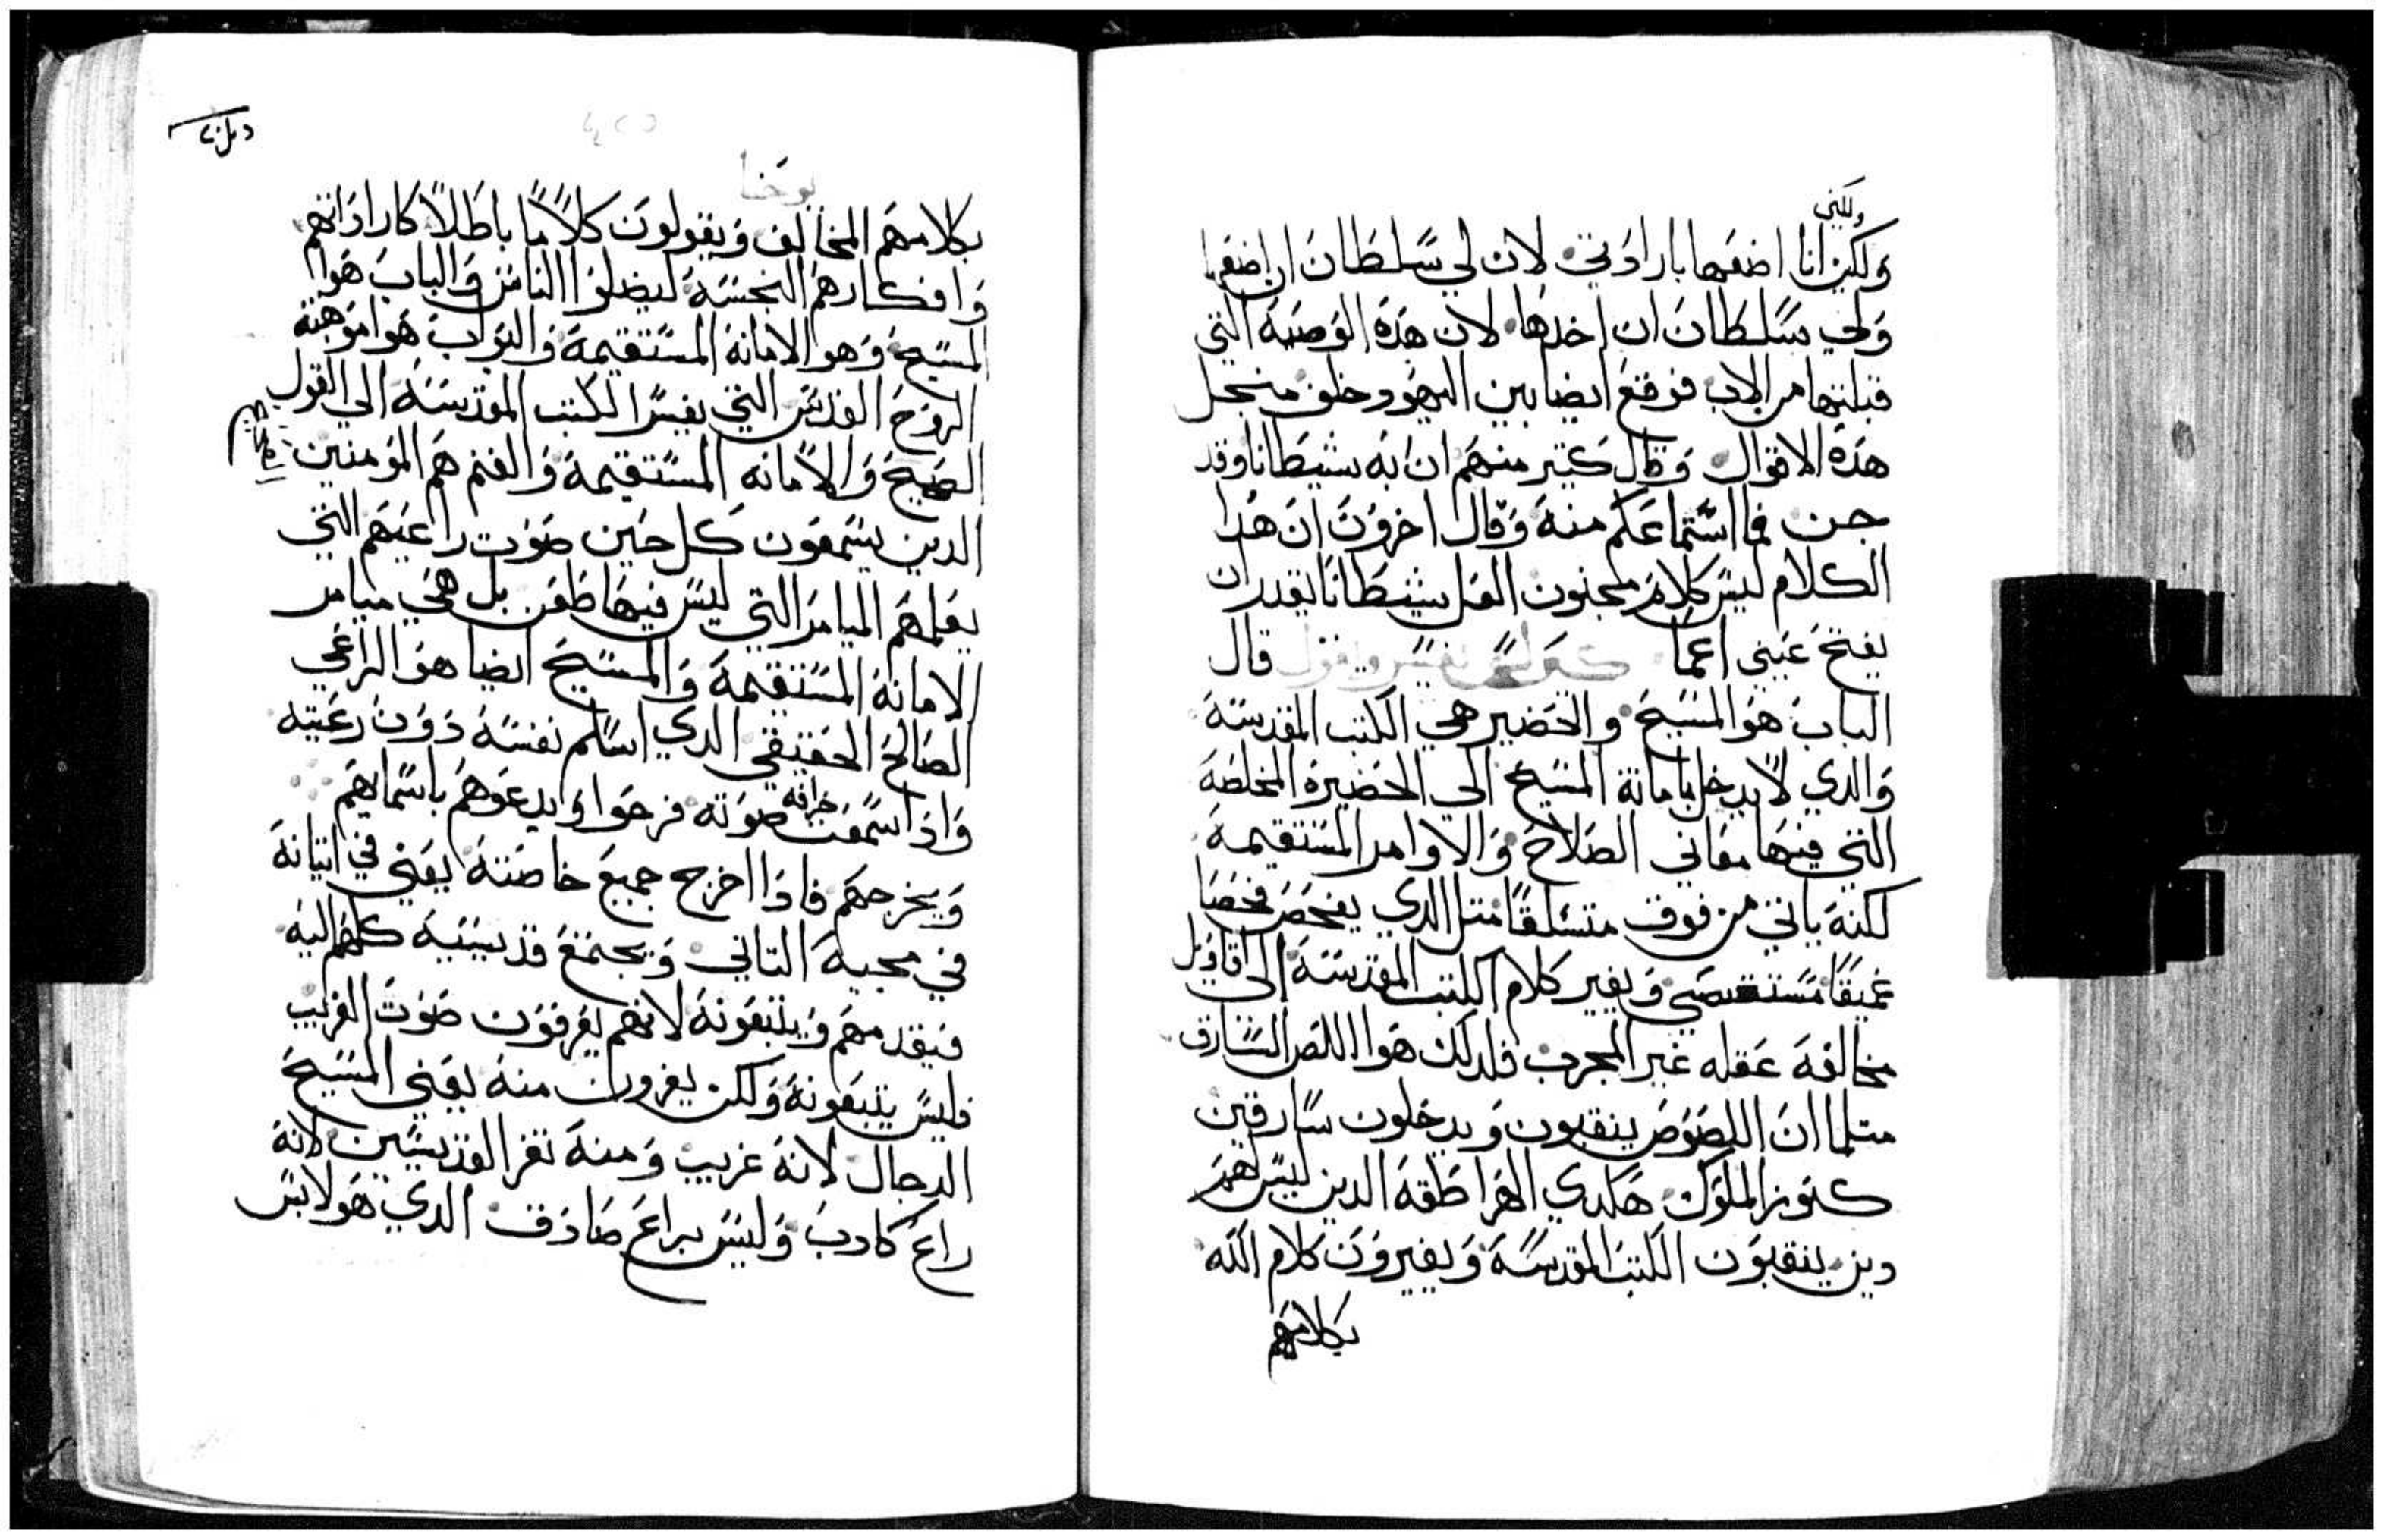 ولكني
ولكن انا اضعها بارادتي لان لي سلطان ان اضعها
ولي سلطان ان اخدها لان هده الوصية التي
قبلتها من الاب فوقع ايضا بين اليهود خلف من جل
هده الاقوال وقال كتير منهم ان به شيطانا وقد
جن فما استماعكم منه وقال اخرون ان هدا
الكلام ليس كلام مجنون العل شيطانا يقدر ان
يفتح عيني اعما كيرلس يفسر ويقول قال
الباب هو المسيح والحضير هي الكتب المقدسة
والدي لا يدخل بامانة المسيح الي الحضيرة المخلصة
التي فيها معاني الصلاح والاوامر المستقيمة
لكنه ياتي من فوق متسلقا متل الدي يفحص فحصا
عميقا مستقصي ويغير كلام الكتب المقدسة الي اقاويل
مخالفة عقله غير المجرب فلدلك هوا اللص السارق
متلما ان اللصوص ينقبون ويدخلون سارقين
كنوز الملوك هكدي الهراطقة الدين ليس لهم
دين ينقبون الكتب المقدسة ويغيرون كلام الله
بكلامهم
يوحنا
بكلامهم المخالف ويقولون كلاما باطلا كاراداتهم
وافكارهم النجسة ليضلوا الناس والباب هوا
المسيح وهو الامانة المستقيمة والبواب هوا موهبة
الروح القدس التي يفسر الكتب المقدسة الي القول
الصحيح والامانه المستقيمة والغنم هم المومنين
الدين يسمعون كل حين صوت راعيهم التي
يعلمهم الميامر التي ليس فيها طغن بل هي ميامر
الامانة المستقيمة والمسيح ايضا هو الراعي
الصالح الحقيقي الدي اسلم نفسه دون رعيته
وادا سمعت خرافه صوته فرحوا ويدعوهم باسمايهم
ويخرجهم فادا اخرج جميع خاصته يعني في اتيانه
في مجيه التاني ويجتمع قديسيه كلهم اليه
فيقدمهم ويتبعونه لانهم يعرفون صوت الغريب
فليس يتبعونه ولكن يفرون منه يعني المسيح
الدجال لانه غريب ومنه تفر القديسين لانه
راع كادب وليس براع صادق الدي هو لابس